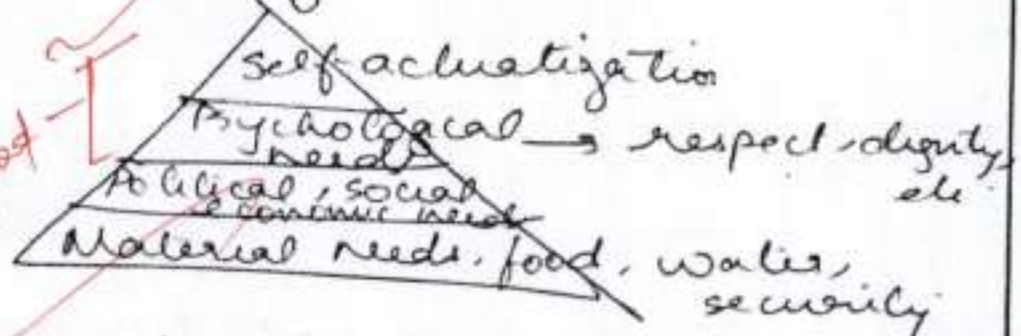 Self-actuatization
Psychological → respect, dignity,
needs etc
Political, social
economic needs
Material needs, food, water,
security